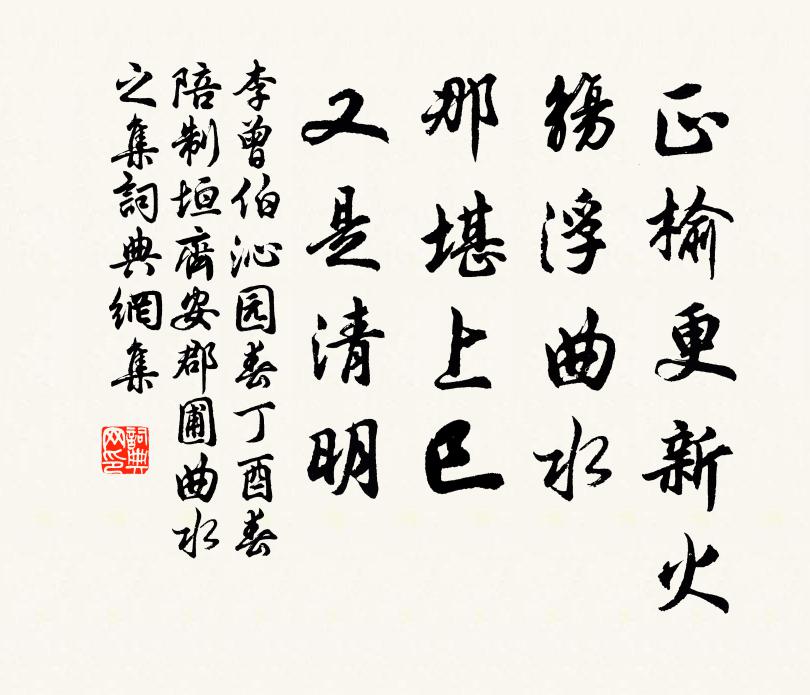 正榆更新火
觞浮曲水
那堪上巳
又是清明
李曾伯沁园春丁酉春
陪制垣齊安郡圃曲水
之集詞典網集
詞典网印